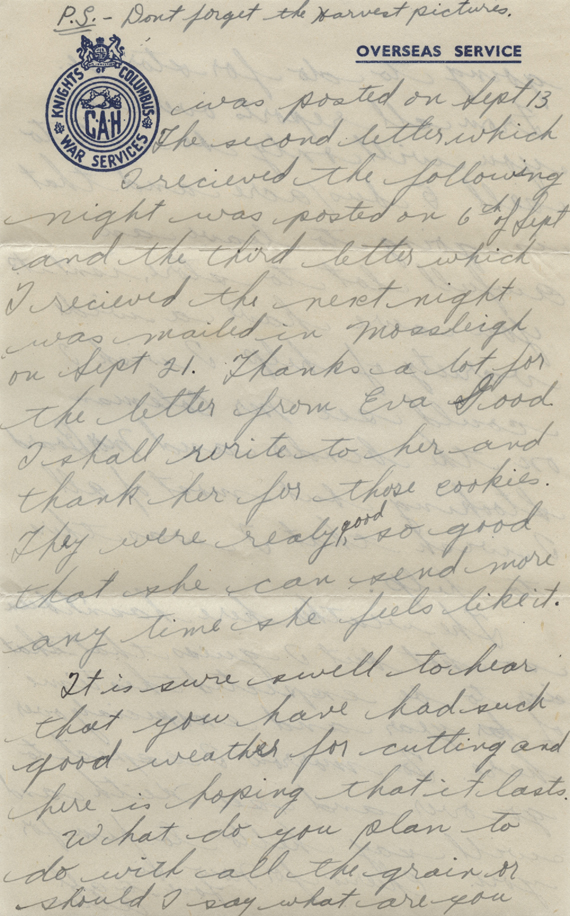 P.S. - Dont forget the Harvest pictures.
OVERSEAS SERVICE
KNIGHTS OF COLUMBUS
CAH
WAR SERVICES
was posted on Sept 13
The second letter which
I recieved the following
night was posted on 6th of Sept
and the third letter which
I recieved the next night
was mailed in Mossleigh
on Sept 21. Thanks a lot for
the letter from Eva Good
I shall write to her and
thank her for those cookies.
They were realy good so good
that she can send more
any time she feels like it.
It is sure swell to hear
that you have had such
good weather for cutting and
here is hoping that it lasts.
What do you plan to
do with all the grain or
should I say what are you